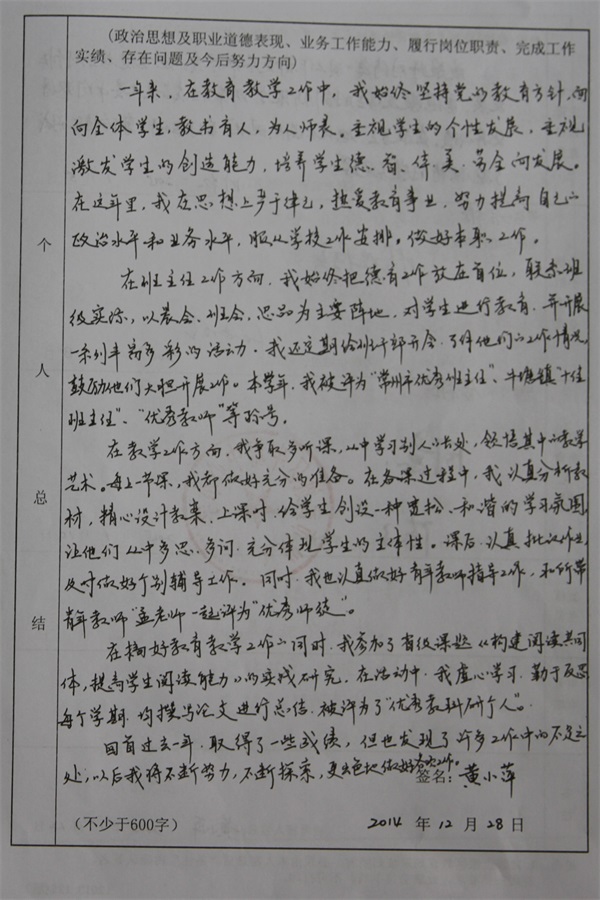 (政治思想及职业道德表现、业务工作能力、履行岗位职责、完成工作
实绩、存在问题及今后努力方向)
个人总结
一年来，在教育教学工作中，我始终坚持党的教育方针，面
向全体学生，教书育人，为人师表。重视学生的个性发展，重视
激发学生的创造能力，培养学生德、智、体、美、劳全向发展。
在这年里，我在思想上严于律己，热爱教育事业，努力提高自己的
政治水平和业务水平，服从学校工作安排。做好本职工作。
在班主任工作方向，我始终把德育工作放在首位，联系班
级实际，以晨会、班会、思品为主要阵地，对学生进行教育，并开展
一系列丰富多彩的活动，我还定期给班干部开会，了解他们的工作情况，
鼓励他们大胆开展工作。本学年，我被评为“常州市优秀班主任”、牛塘镇“十佳
班主任”、“优秀教师”等称号。
在教学工作方向，我争取多听课，从中学习别人的长处，领悟其中的教学
艺术。每上一节课，我都做好充分的准备。在备课过程中，我认真分析教
材，精心设计教案，上课时，给学生创设一种宽松、和谐的学习氛围，
让他们从中多思、多问，充分体现学生的主体性。课后，认真批改作业，
及时做好个别辅导工作。同时，我也认真做好青年教师指导工作，和所带
青年教师“孟老师一起评为“优秀师徒”。
在搞好教育教学工作的同时，我参加了省级课题《构建阅读共同
体，提高学生阅读能力》的实践研究，在活动中，我虚心学习，勤于反思
每个学期，均撰写论文进行总结，被评为了“优秀教科研个人”。
回首过去一年，取得了一些成绩，但也发现了许多工作中的不足之
处，以后我将不断努力，不断探索，更出色地做好本职工作。
签名：黄小萍
(不少于600字) 2014 年 12 月 28 日